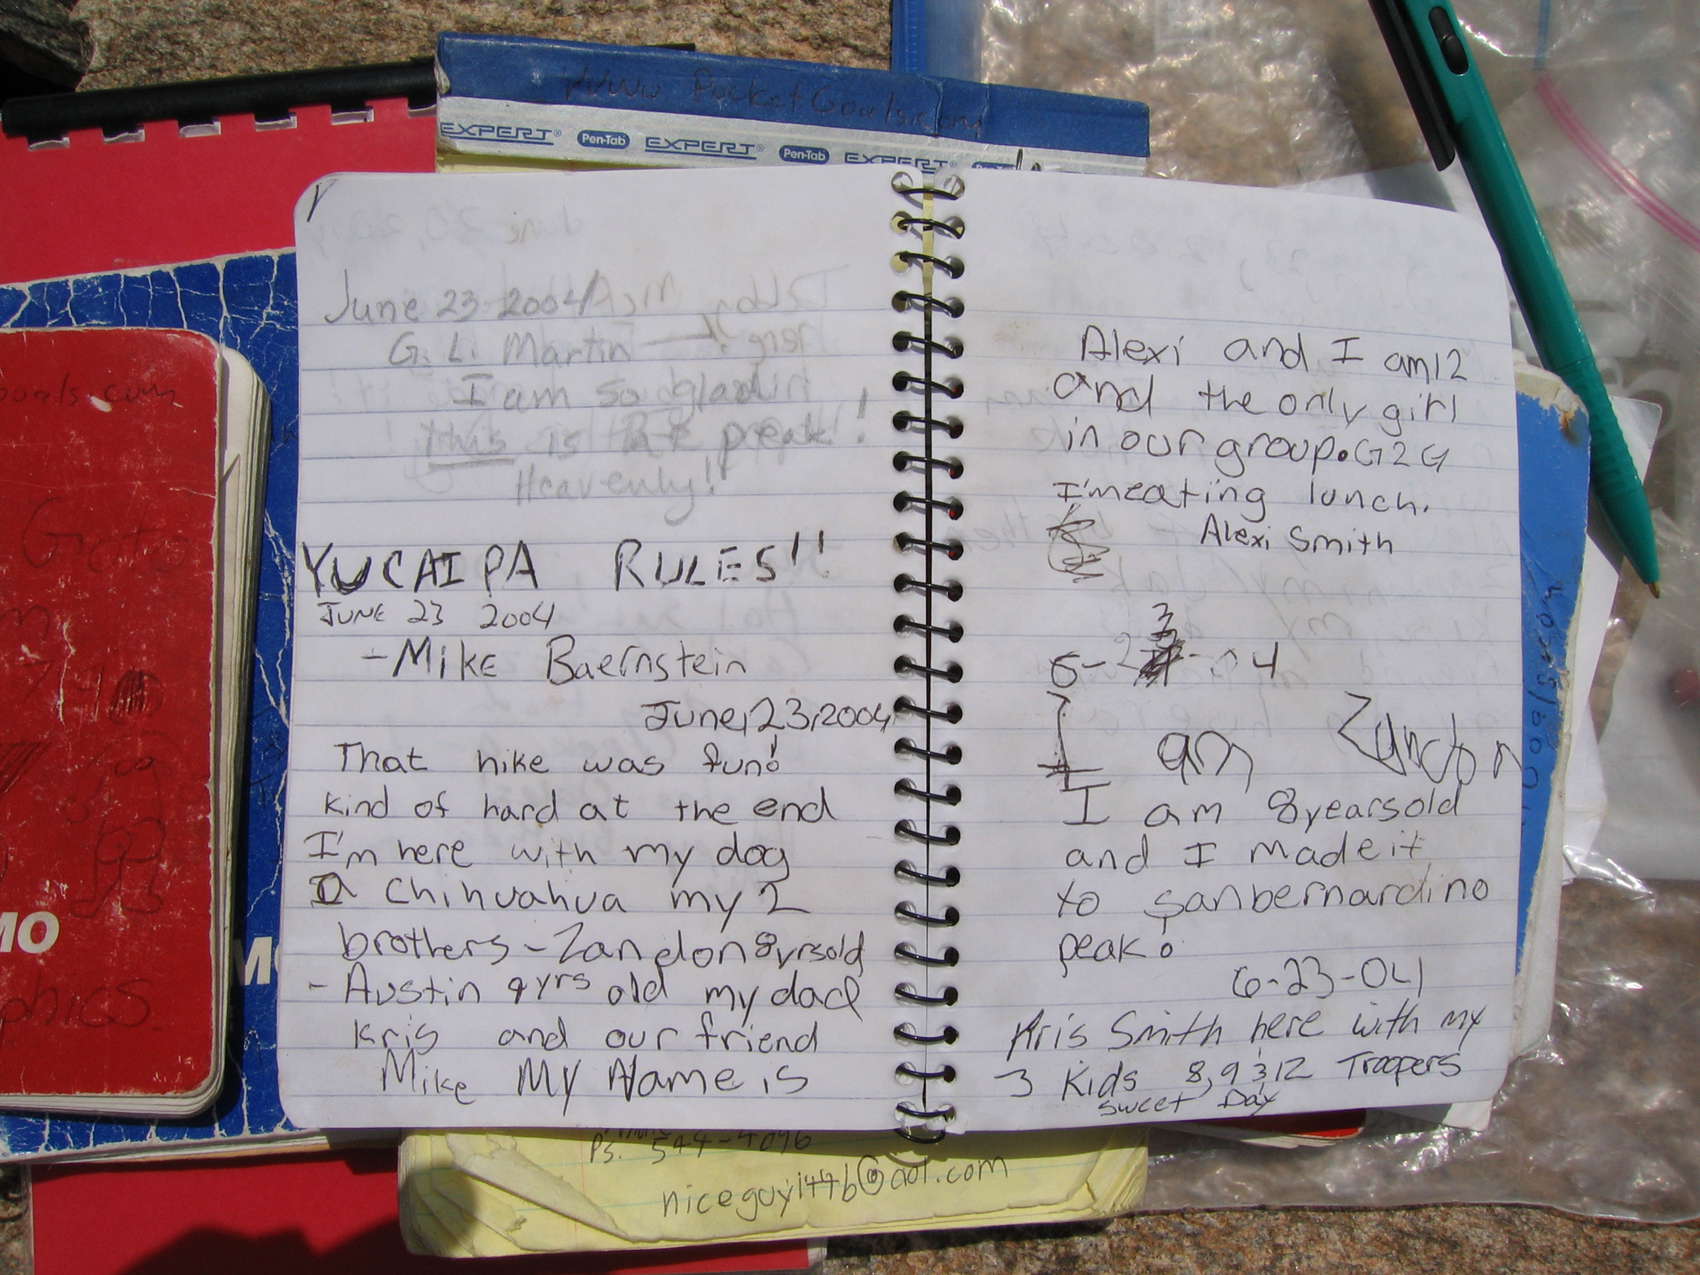 www.PocketGoals.com
EXPERT® Pen-Tab EXPERT® Pen-Tab EXPERT®
June 23 2004
G. L. Martin
I am so glad
this is the peak!!
Heavenly!
YUCAIPA RULES!!
JUNE 23 2004
-Mike Baernstein
June, 23, 2004
That hike was fun!
kind of hard at the end
I'm here with my dog
a Chihuahua my 2
brothers - Zandon 8yrsold
- Austin 9yrs old my dad
Kris and our friend
Mike My Name is
Alexi and I am 12
and the only girl
in our group. G2G
I'm eating lunch.
Alexi Smith
6-23-04
I am Zandon
I am 8 years old
and I made it
to sanbernardino
peak.
6-23-04
Kris Smith here with my
3 Kids 8, 9 & 12 Troopers
Sweet Day
Ps. 544-4096
niceguy1446@aol.com
oals.com
Goto
MO
phics